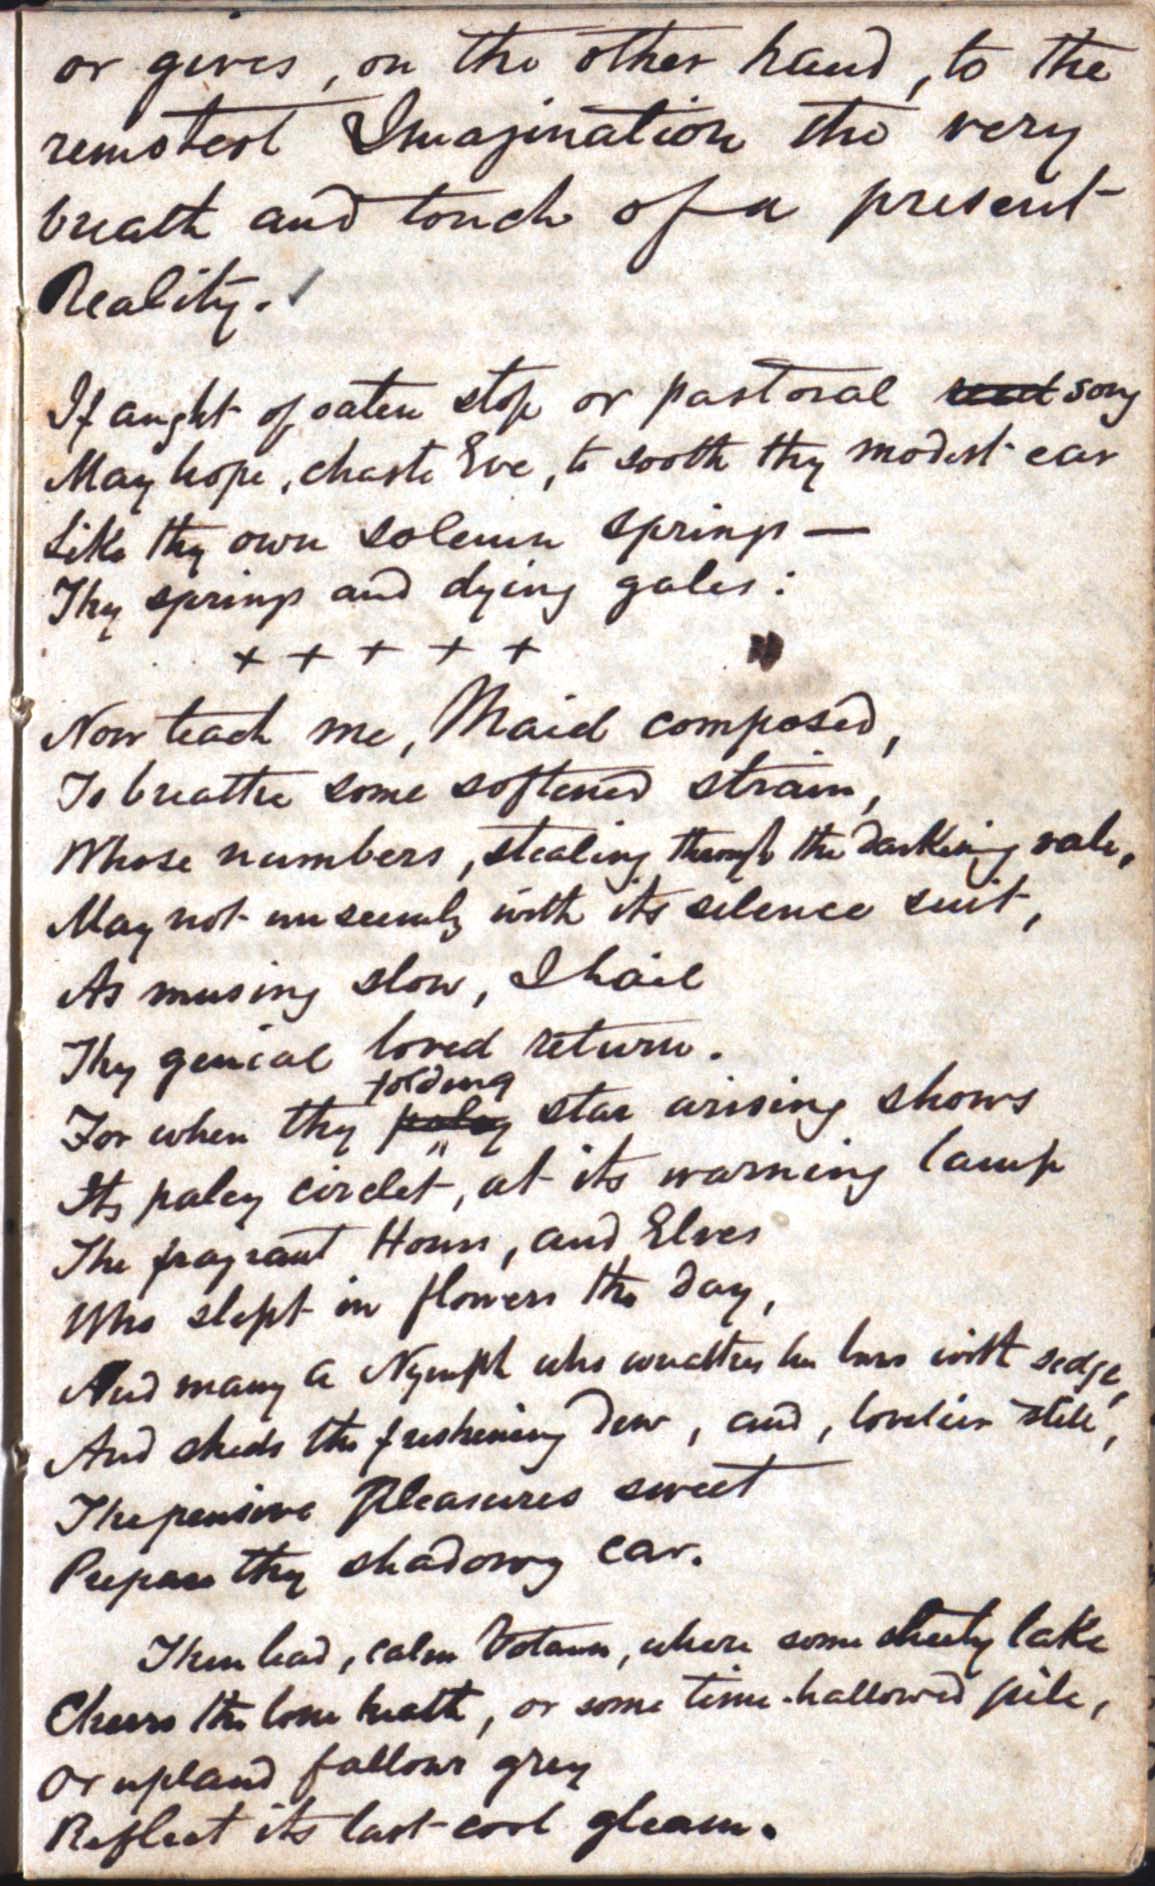 or gives, on the other hand, to the
remotest Imagination the very
breath and touch of a present
Reality.
If aught of oaten stop or pastoral reed song
May hope, chaste Eve, to sooth thy modest ear
Like thy own solemn springs —
Thy springs and dying gales:
+ + + + +
Now teach me, Maid composed,
To breathe some softened strain,
Whose numbers, stealing through the darkning vale,
May not unseemly with its silence suit,
As musing slow, I hail
Thy genial loved return.
folding
For when thy paley star arising shows
Its paley circlet, at its warning lamp
The fragrant Hours, and Elves
Who slept in flowers the day,
And many a Nymph who wreathes her brows with sedge,
And sheds the freshening dew, and, lovelier still,
The pensive Pleasures sweet
Prepare thy shadowy car.
Then lead, calm Votaress, where some sheety lake
Cheers the lone heath, or some time-hallowed pile,
Or upland fallows grey
Reflect its last cool gleam.